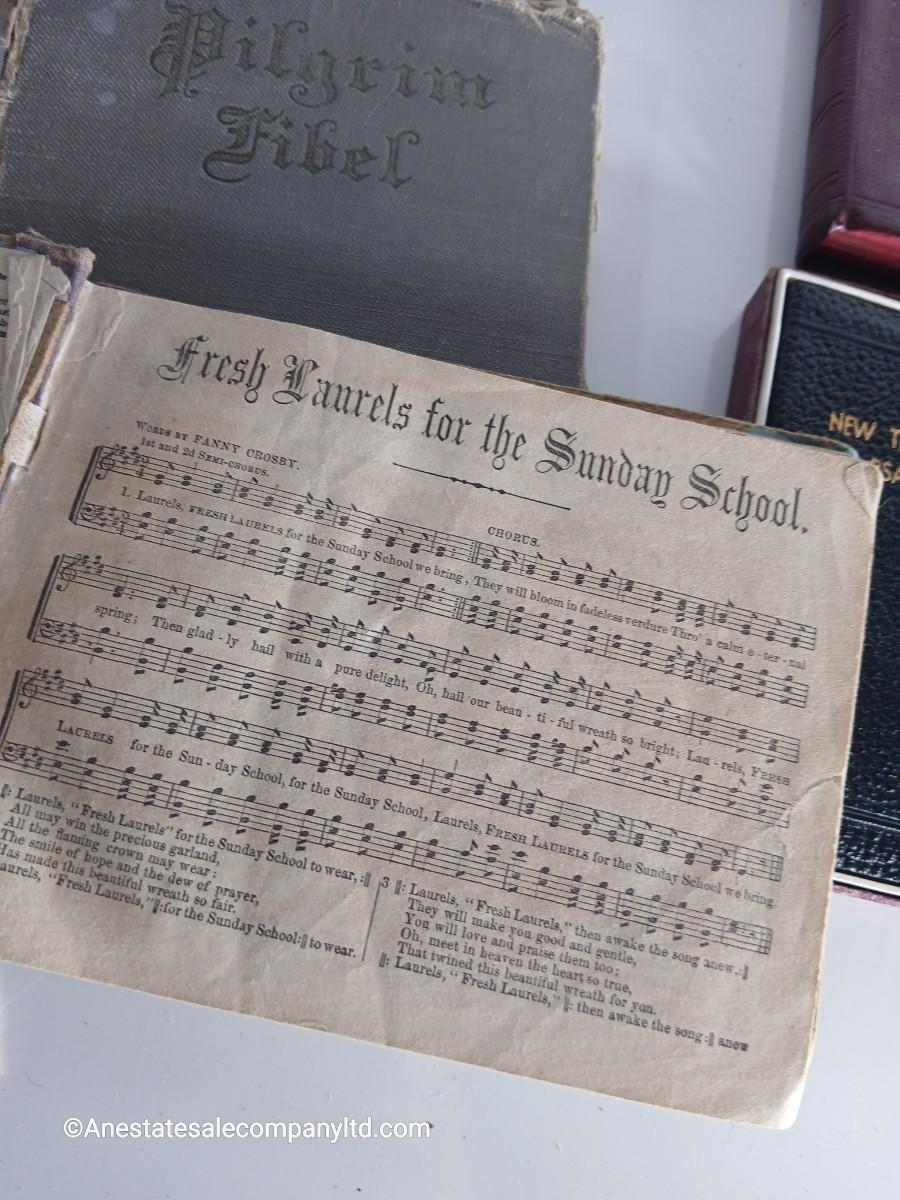 Pilgrim
Fibel
NEW T
Fresh Laurels for the Sunday School.
WORDS BY FANNY CROSBY.
1st and 2d SEMI-CHORUS.
CHORUS.
1. Laurels, FRESH LAURELS for the Sunday School we bring, They will bloom in fadeless verdure Thro' a calm e - ter - nal
spring; Then glad - ly hail with a pure delight, Oh, hail our beau - ti - ful wreath so bright; Lau - rels, FRESH
LAURELS for the Sun - day School, for the Sunday School, Laurels, FRESH LAURELS for the Sunday School we bring.
‖: Laurels, "Fresh Laurels" for the Sunday School to wear, :‖
All may win the precious garland,
All the flaming crown may wear:
The smile of hope and the dew of prayer,
Has made this beautiful wreath so fair.
aurels, "Fresh Laurels,"‖:for the Sunday School:‖ to wear.
3 ‖: Laurels, "Fresh Laurels," then awake the song anew.:‖
They will make you good and gentle,
You will love and praise them too;
Oh, meet in heaven the heart so true,
That twined this beautiful wreath for you.
‖: Laurels, "Fresh Laurels," ‖: then awake the song:‖ anew
©Anestatesalecompanyltd.com